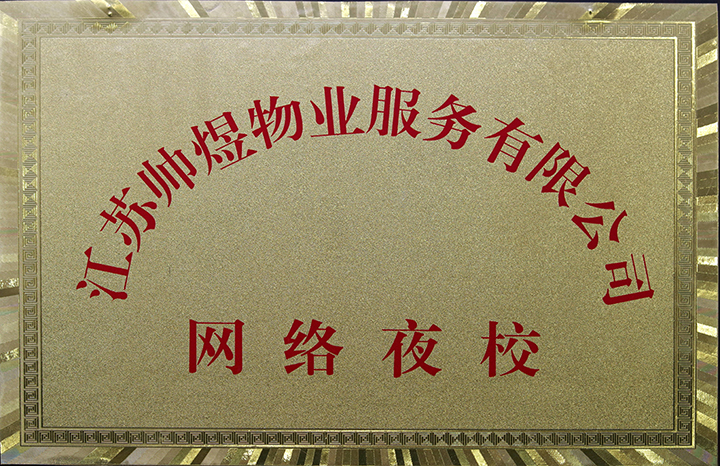 江苏帅煜物业服务有限公司
网络夜校